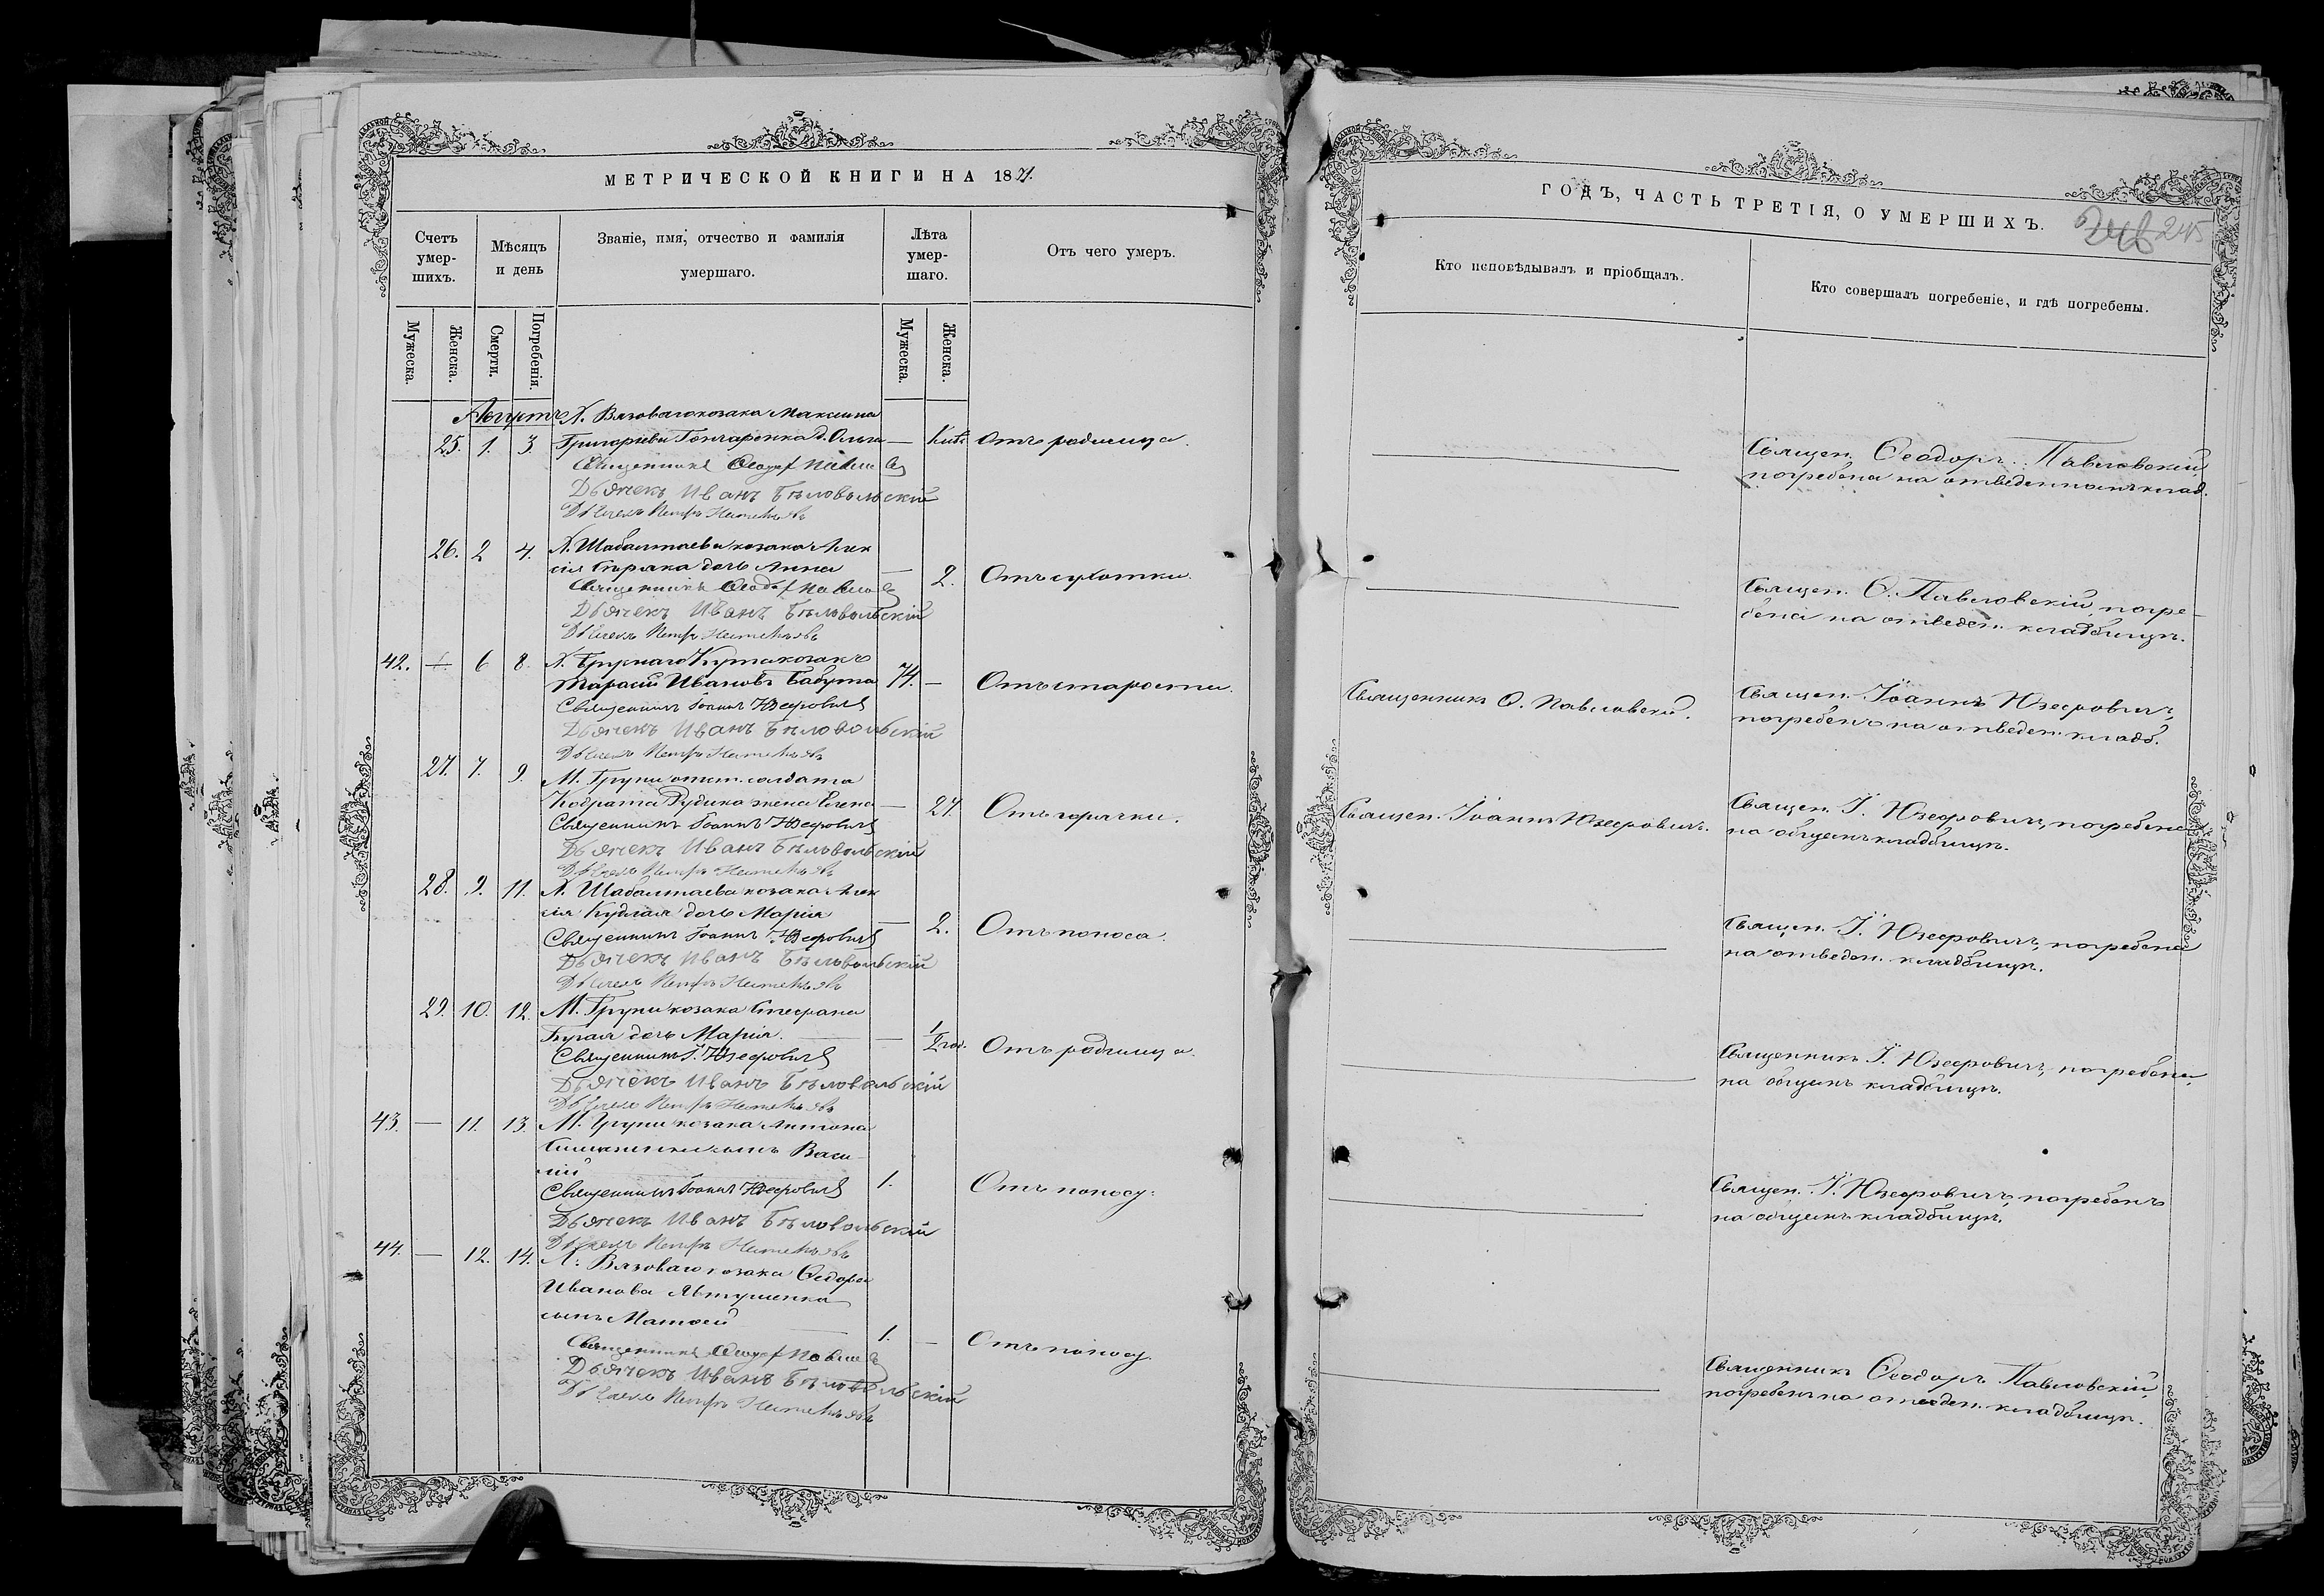 МЕТРИЧЕСКОЙ КНИГИ НА 1871.
Счетъ умер-шихъ.
Мѣсяцъ и день
Званіе, имя, отчество и фамилія
умершаго.
Лѣта умер-шаго.
Отъ чего умеръ.
Мужеска.
Женска.
Смерти.
Погребенія.
Мужеска.
Женска.
Августъ Х. Вязоваго козака Максима
25. 1. 3. Григорьева Гончаренка д. Ольга — Отъ родимца.
Священникъ Ѳеодоръ
Дьячекъ Иванъ Бѣловольскій
Дьячекъ Петръ
26. 2 4. Х. Шабалтаева козака Алек
сія Биряка дочь Анна — 2. Отъ сухотки.
Священникъ Ѳеодоръ
Дьячекъ Иванъ Бѣловольскій
Дьячекъ Петръ
42. — 6 8. Х. Кута козакъ
Тарасій Ивановъ Бабута 74. — Отъ старости.
Священникъ Іоаннъ Юзефовичъ
Дьячекъ Иванъ Бѣловольскій
Дьячекъ Петръ
27. 7. 9. М. Груни отст. солдата
Кодрата Рудика жена Елена — 27. Отъ горячки.
Священникъ Іоаннъ Юзефовичъ
Дьячекъ Иванъ Бѣловольскій
Дьячекъ Петръ
28. 9. 11. Х. Шабалтаева козака Алек
сія Кудлая дочь Марія — 2. Отъ поноса.
Священникъ Іоаннъ Юзефовичъ
Дьячекъ Иванъ Бѣловольскій
Дьячекъ Петръ
29. 10. 12. М. Груни козака Стефана
Бугая дочь Марія. — 1/2 год. Отъ родимца.
Священникъ І. Юзефовичъ
Дьячекъ Иванъ Бѣловольскій
Дьячекъ Петръ
43. — 11. 13. М. Груни козака Антона
сынъ Васи-
лій 1. Отъ поносу.
Священникъ Іоаннъ Юзефовичъ
Дьячекъ Иванъ Бѣловольскій
Дьячекъ Петръ
44. — 12. 14. Х. Вязоваго козака Ѳедора
Иванова Явтушенка
сынъ Матѳей 1. — Отъ поносу.
Священникъ Ѳеодоръ
Дьячекъ Иванъ Бѣловольскій
Дьячекъ Петръ
ГОДЪ, ЧАСТЬ ТРЕТІЯ, О УМЕРШИХЪ.
245
Кто исповѣдывалъ и пріобщалъ.
Кто совершалъ погребеніе, и гдѣ погребены.
Священ. Ѳеодоръ Павловскій,
погребена на отведенномъ клад.
Священ. Ѳ. Павловскій, погре-
бена на отведен. кладбищѣ.
Священникъ Ѳ. Павловскій.
Священ. Іоаннъ Юзефовичъ,
погребенъ на отведен. кладб.
Священ. Іоаннъ Юзефовичъ.
Священ. І. Юзефовичъ, погребена
на общемъ кладбищѣ.
Священ. І. Юзефовичъ, погребена
на отведен. кладбищѣ.
Священникъ І. Юзефовичъ, погребена
на общемъ кладбищѣ.
Священ. І. Юзефовичъ, погребенъ
на общемъ кладбищѣ.
Священникъ Ѳеодоръ Павловскій,
погребенъ на отведен. кладбищѣ.